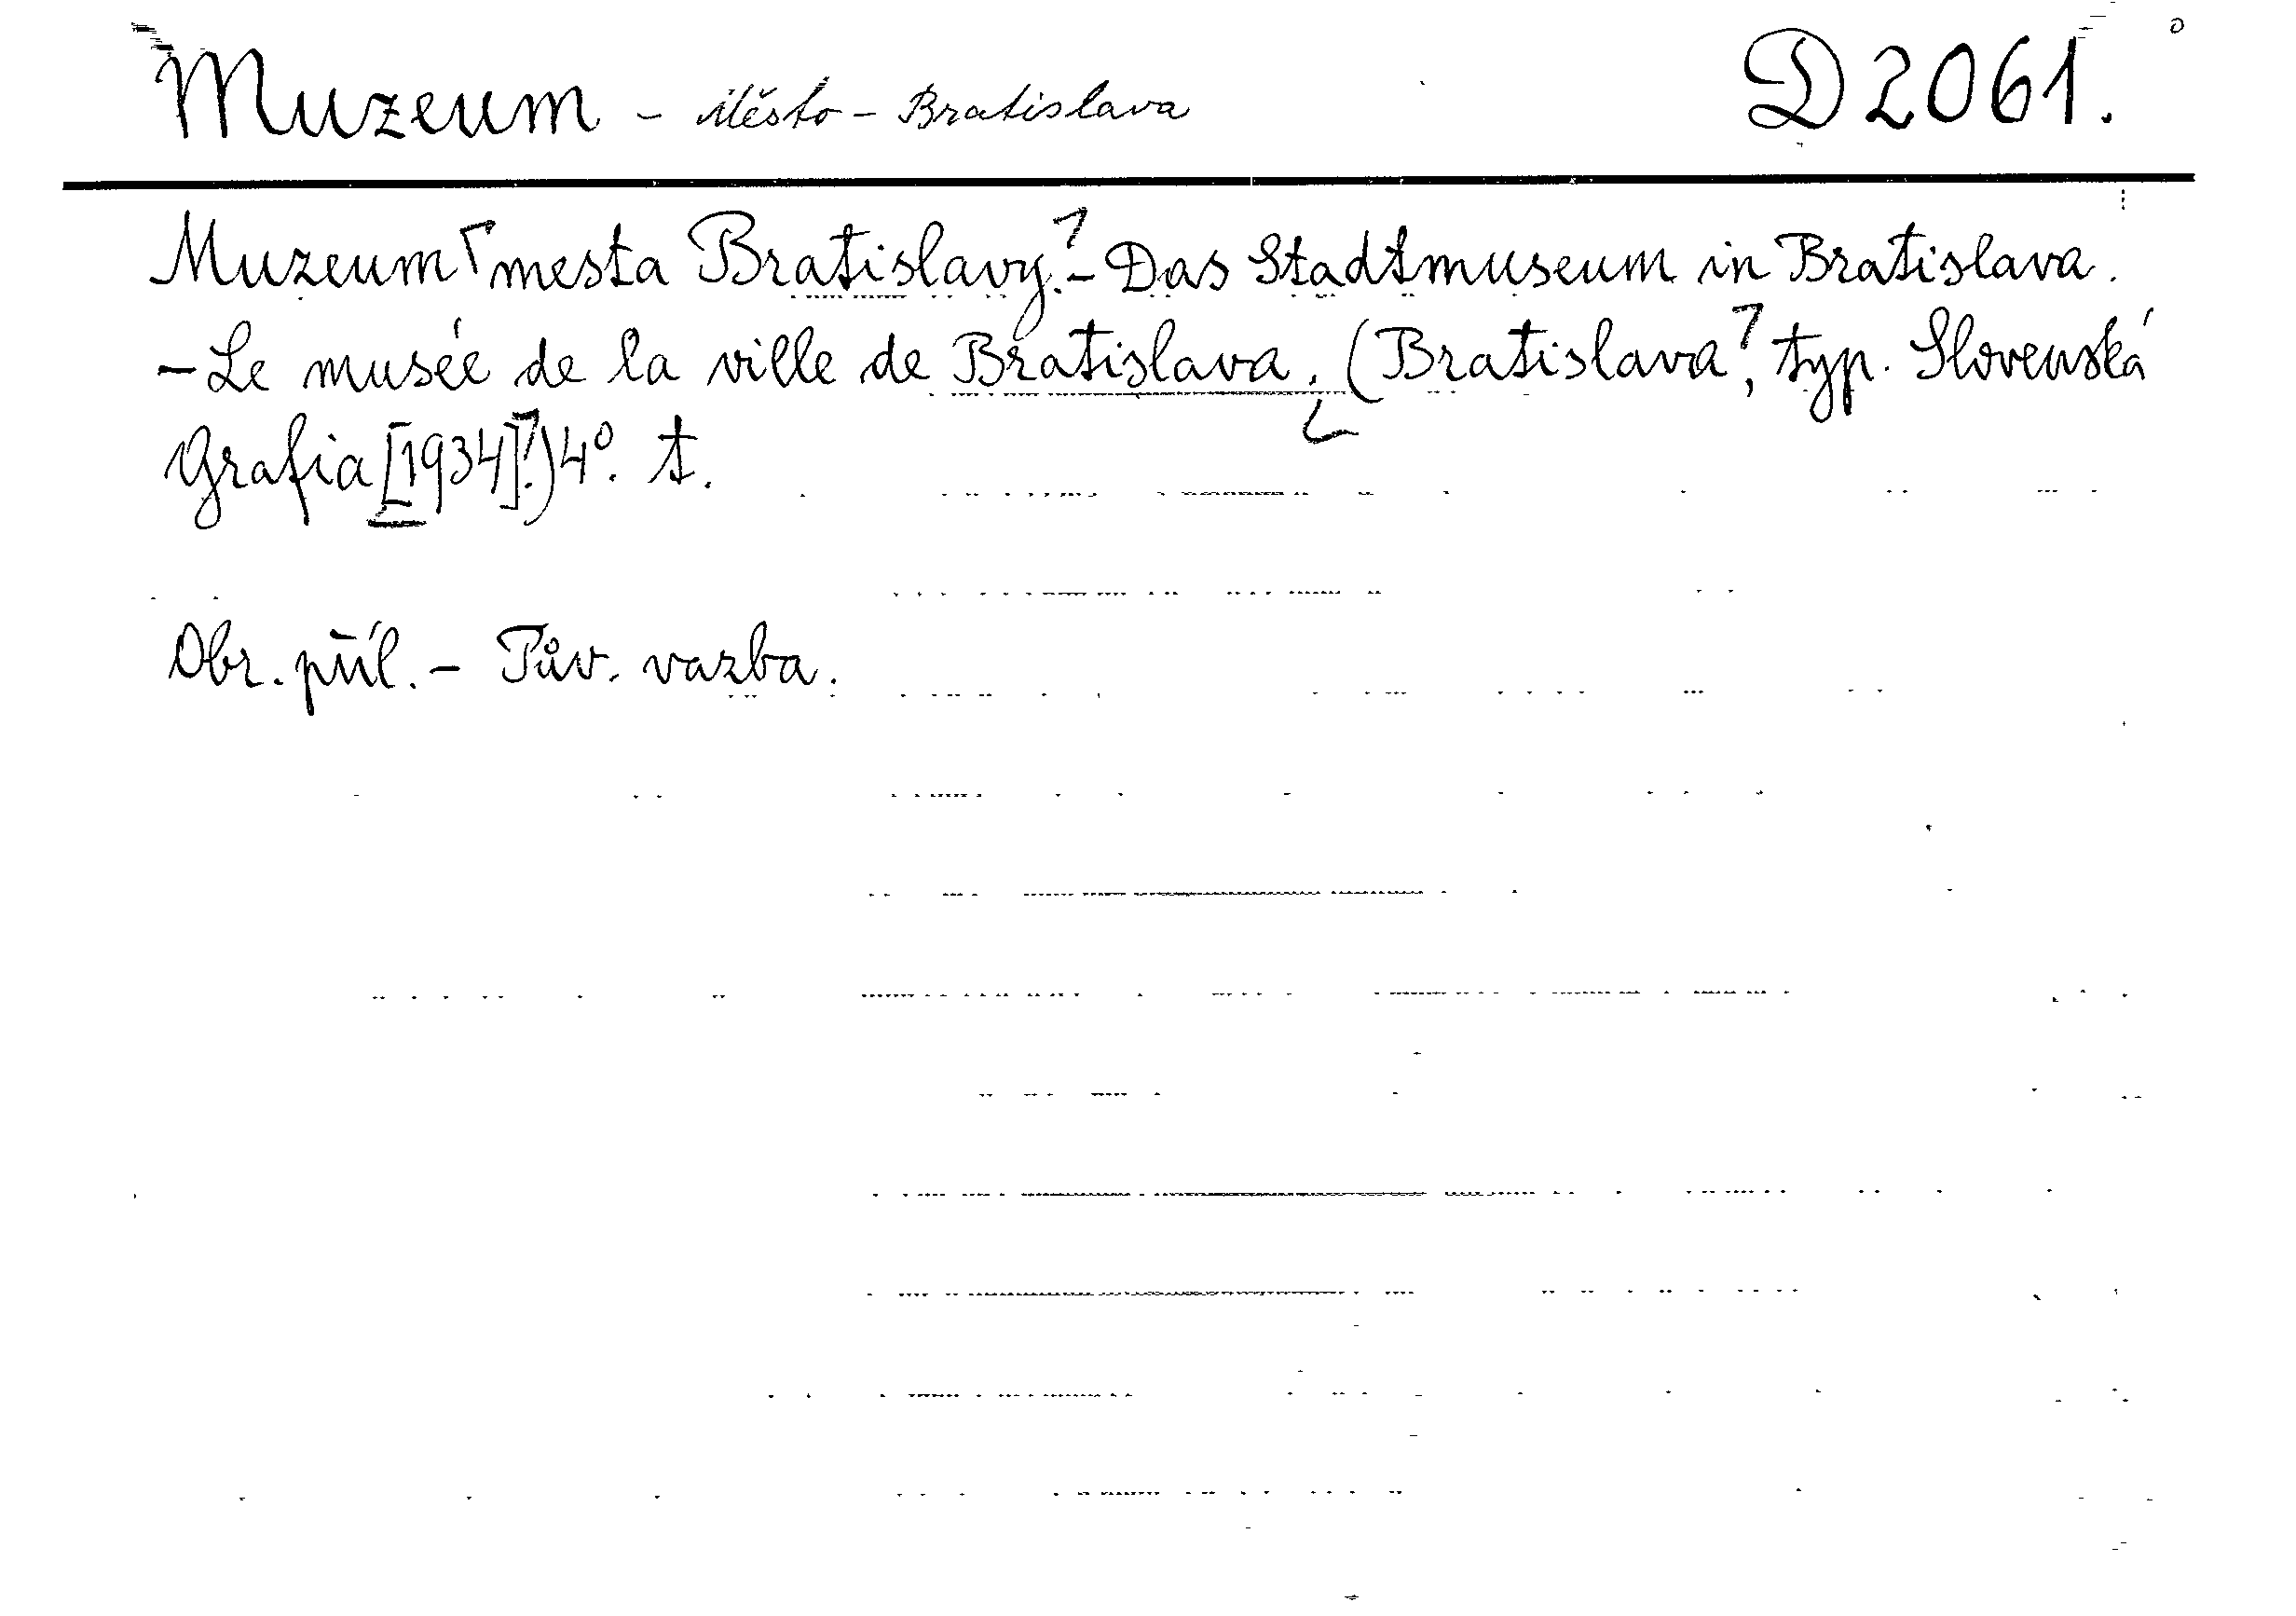 Muzeum - Město - Bratislava D 2061.
Muzeum ⌈mesta Bratislavy.⌉ - Das Stadtmuseum in Bratislava.
- Le musée de la ville de Bratislava. (Bratislava⌉, typ. Slovenská
Grafia [1934].⌉) 4º. t.
Obr. příl. - Pův. vazba.